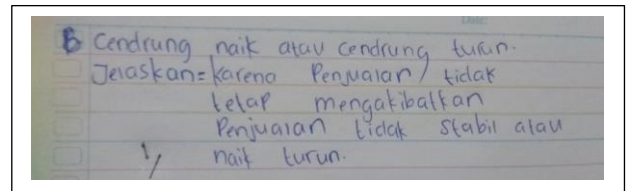 B Cendrung naik atau cendrung turun.
Jelaskan = karena Penjualan / tidak
tetap mengakibatkan
Penjualan tidak stabil atau
naik turun.